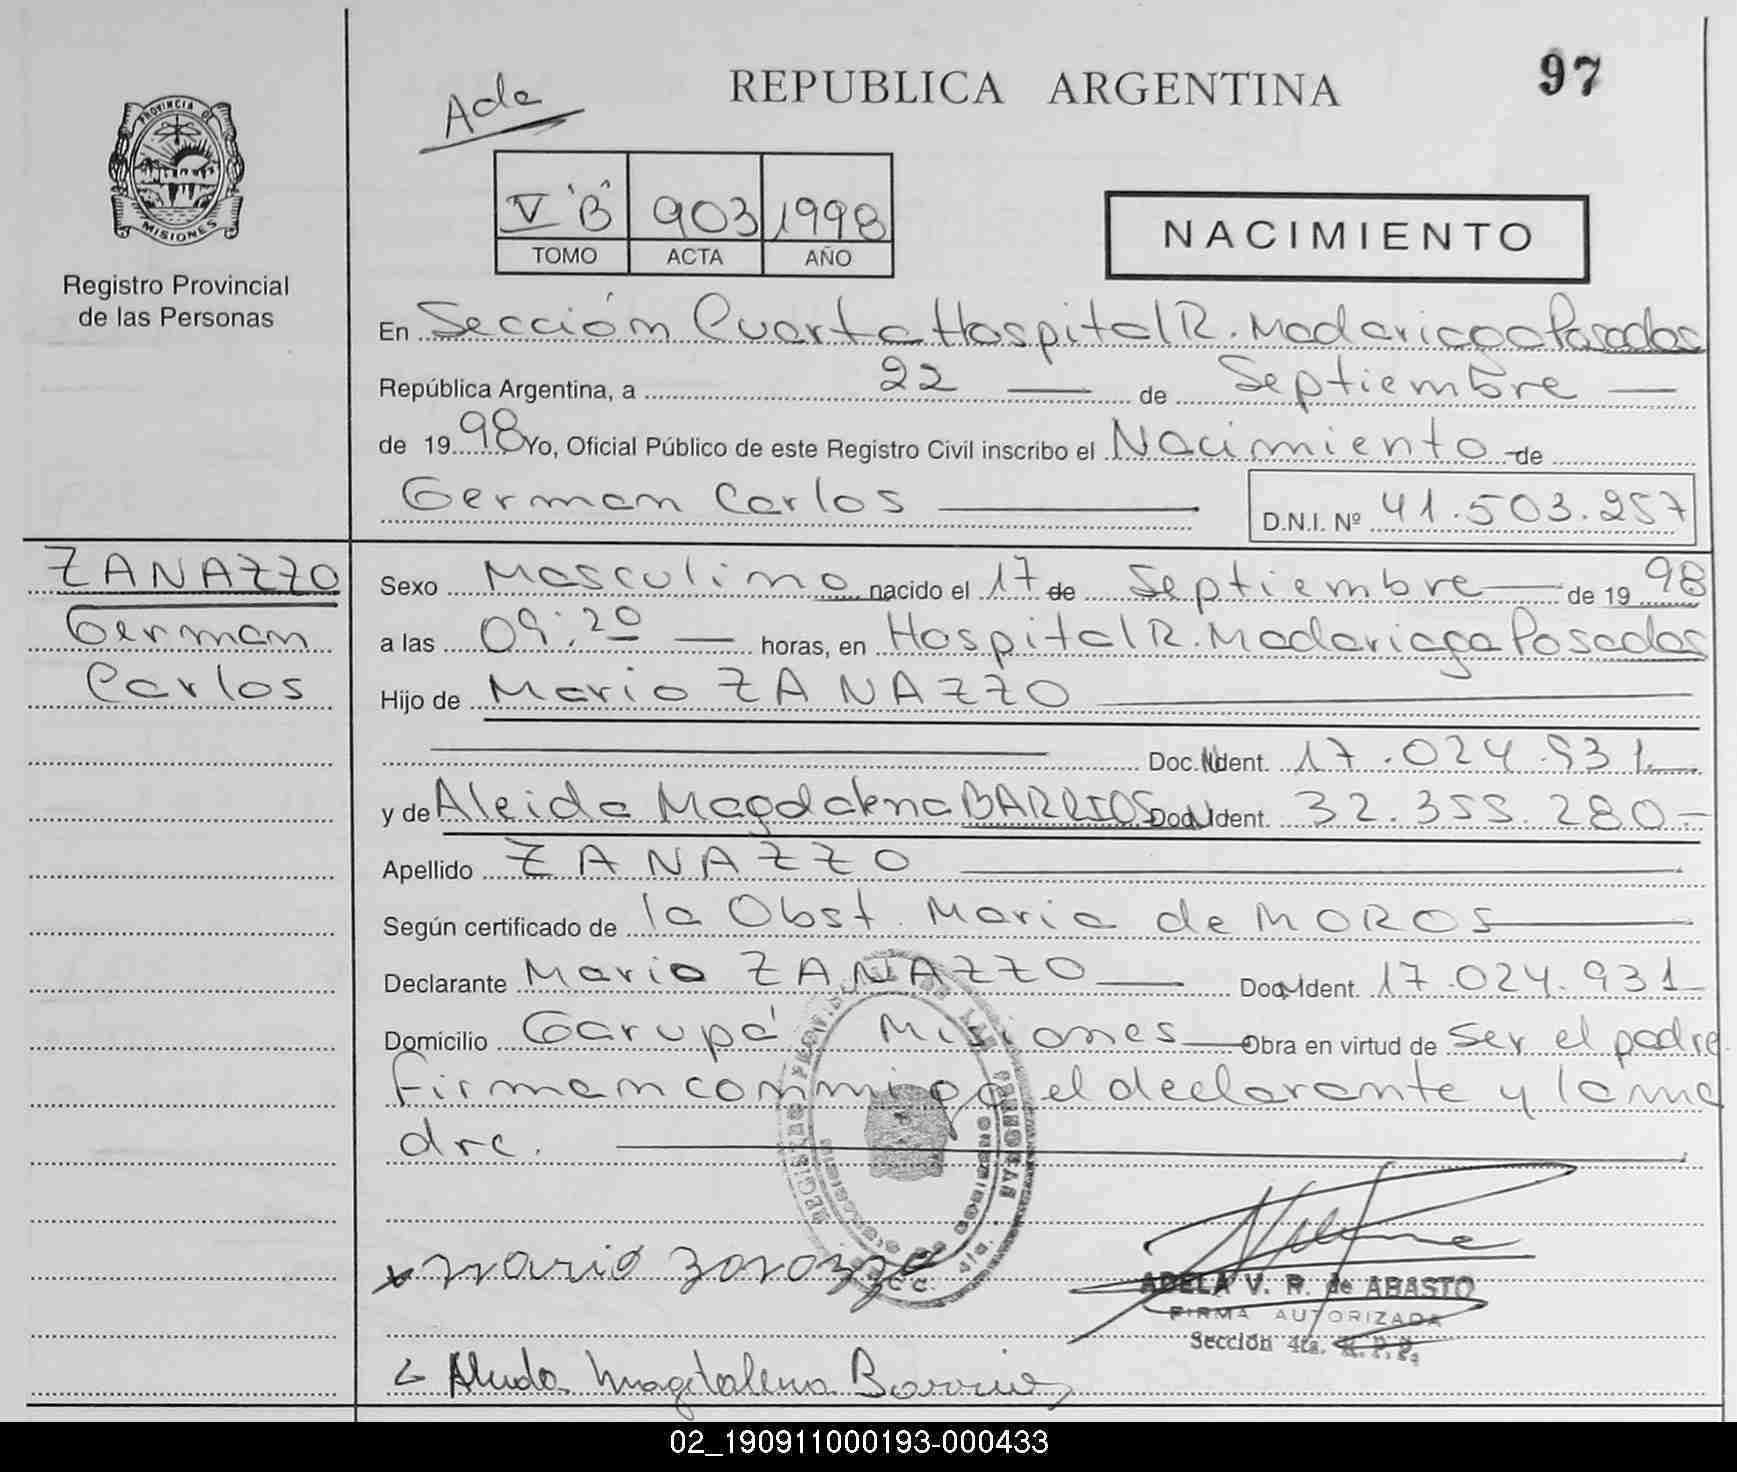 REPUBLICA ARGENTINA
97
Ada
PROVINCIA DE
MISIONES
Registro Provincial
de las Personas
V "B" 903 1998
TOMO ACTA AÑO
NACIMIENTO
En Sección Cuarta Hospital R. Madariaga Posadas
República Argentina, a 22 de Septiembre
de 1998 Yo, Oficial Público de este Registro Civil inscribo el Nacimiento de
German Carlos D.N.I. Nº 41.503.257
ZANAZZO
German
Carlos
Sexo Masculino nacido el 17 de Septiembre de 1998
a las 09:20 horas, en Hospital R. Madariaga Posadas
Hijo de Mario ZANAZZO
Doc. Ident. 17.024.931
y de Aleida Magdalena BARRIOS Doc. Ident. 32.355.280
Apellido ZANAZZO
Según certificado de la Obst. Maria de MOROS
Declarante Mario ZANAZZO Doc. Ident. 17.024.931
Domicilio Garupá Misiones Obra en virtud de ser el padre
Firman conmigo el declarante y la ma
dre.
x mario zanazzo
ADELA V. R. de ABASTO
FIRMA AUTORIZADA
Sección 4ta. R. P. P.
Aleida Magdalena Barrios
02_190911000193-000433